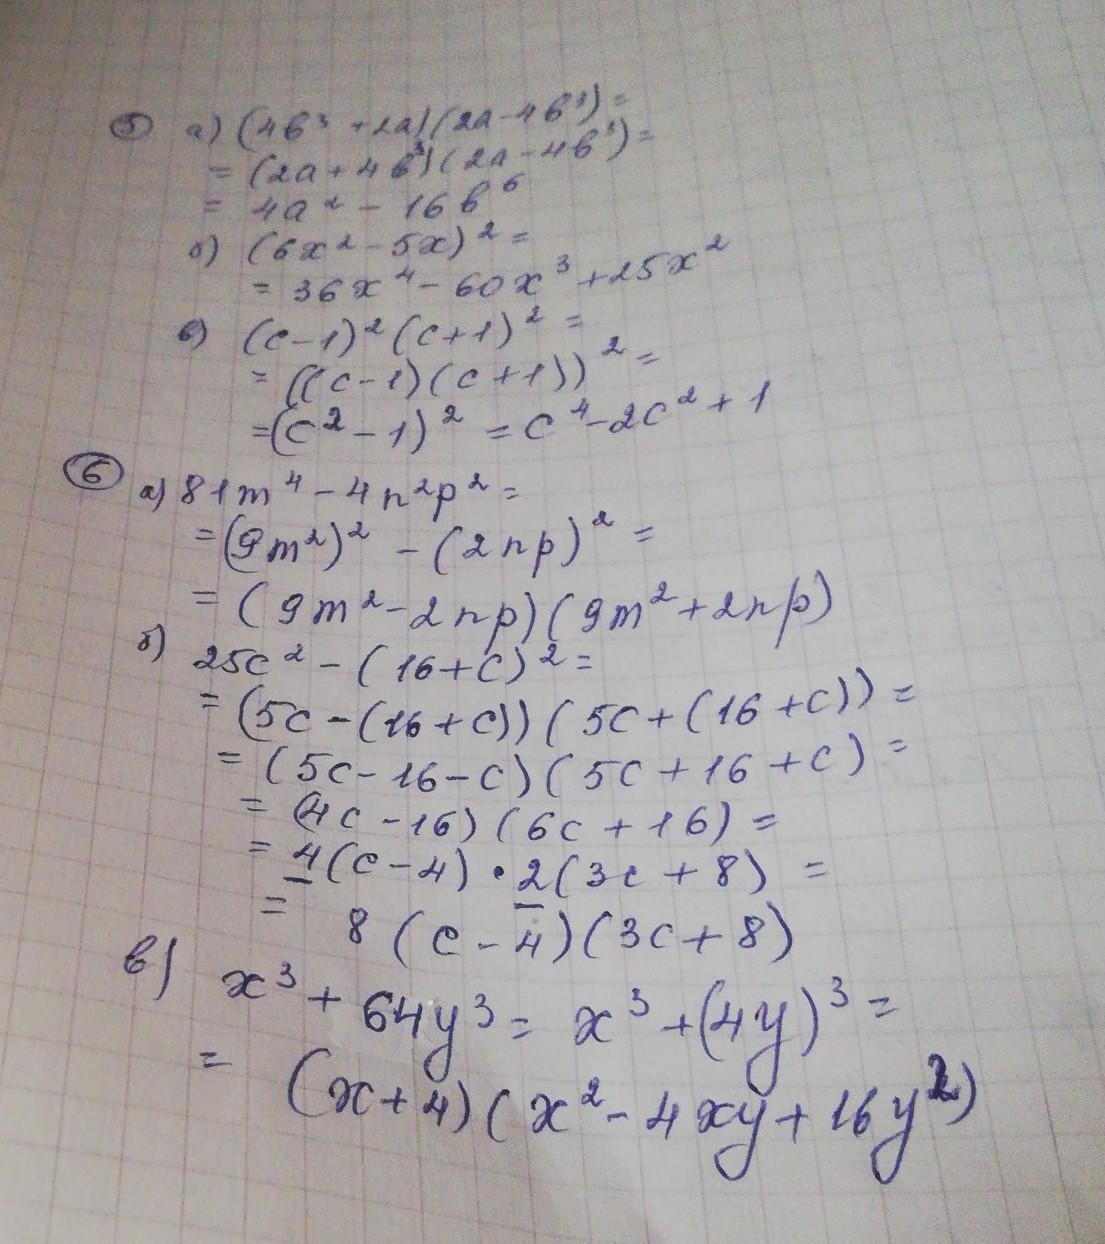 5 а) (4b³ + 2a)(2a - 4b³) =
= (2a + 4b³)(2a - 4b³) =
= 4a² - 16b⁶
б) (6x² - 5x)² =
= 36x⁴ - 60x³ + 25x²
в) (c - 1)² (c + 1)² =
= ((c - 1)(c + 1))² =
= (c² - 1)² = c⁴ - 2c² + 1
6 а) 81m⁴ - 4n²p² =
= (9m²)² - (2np)² =
= (9m² - 2np)(9m² + 2np)
б) 25c² - (16 + c)² =
= (5c - (16 + c))(5c + (16 + c)) =
= (5c - 16 - c)(5c + 16 + c) =
= (4c - 16)(6c + 16) =
= 4(c - 4) · 2(3c + 8) =
= 8(c - 4)(3c + 8)
в) x³ + 64y³ = x³ + (4y)³ =
= (x + 4)(x² - 4xy + 16y²)